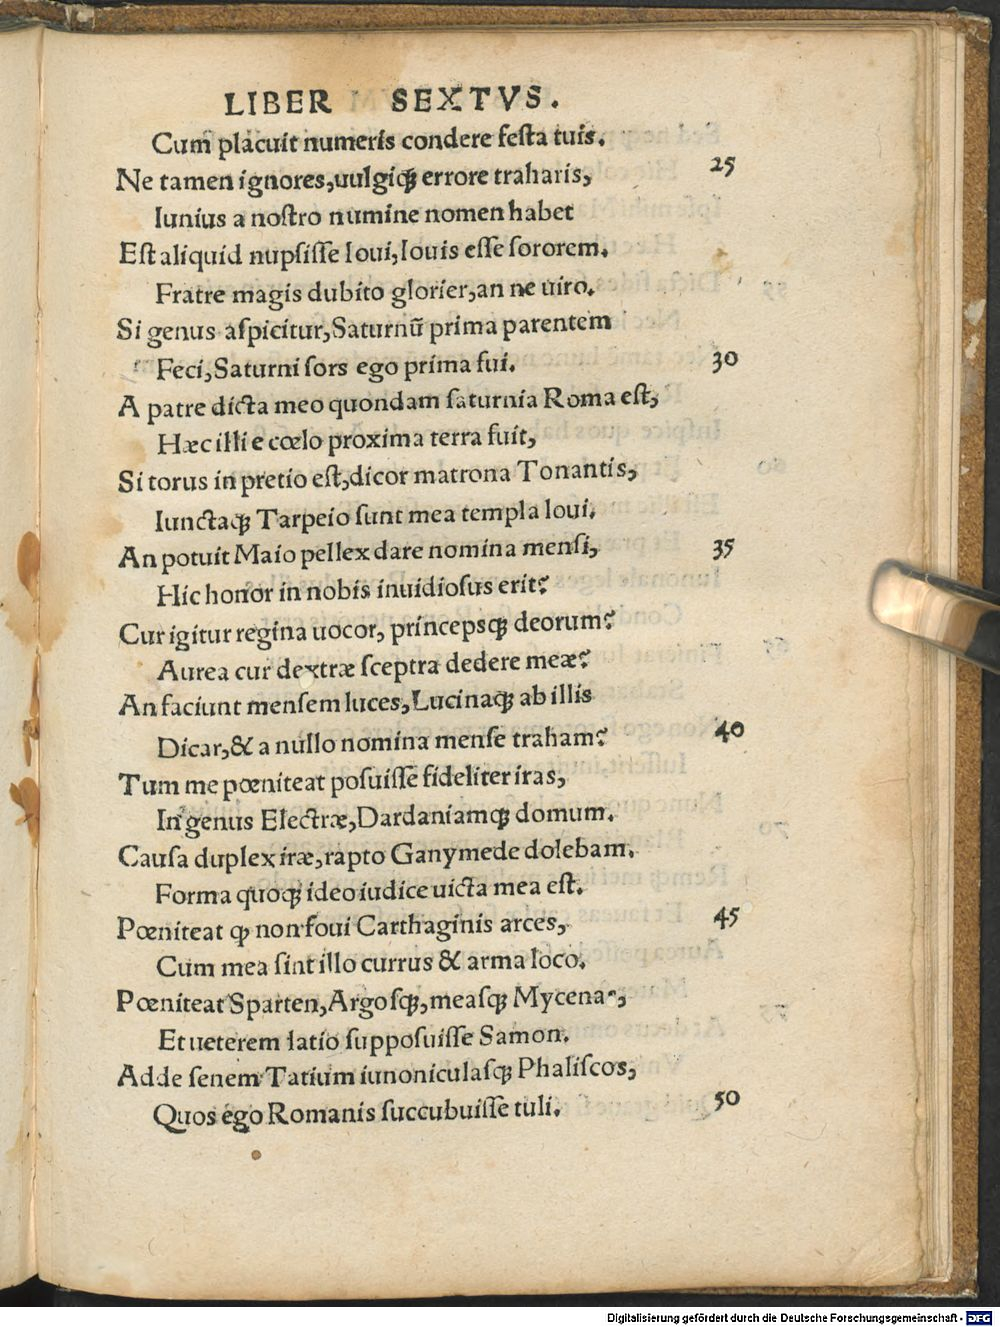 LIBER SEXTVS.
Cum placuit numeris condere festa tuis.
Ne tamen ignores, uulgiqꝫ errore traharis, 25
Iunius a nostro numine nomen habet
Est aliquid nupsisse Ioui, Iouis esse sororem.
Fratre magis dubito glorier, an ne uiro.
Si genus aspicitur, Saturnũ prima parentem
Feci, Saturni sors ego prima fui. 30
A patre dicta meo quondam saturnia Roma est,
Hæc illi e cœlo proxima terra fuit,
Si torus in pretio est, dicor matrona Tonantis,
Iunctaqꝫ Tarpeio sunt mea templa Ioui.
An potuit Maio pellex dare nomina mensi, 35
Hic honor in nobis inuidiosus erit?
Cur igitur regina uocor, princepsqꝫ deorum?
Aurea cur dextræ sceptra dedere meæ?
An faciunt mensem luces, Lucinaqꝫ ab illis
Dicar, & a nullo nomina mense traham? 40
Tum me pœniteat posuisse fideliter iras,
In genus Electræ, Dardaniamqꝫ domum.
Causa duplex iræ, rapto Ganymede dolebam.
Forma quoqꝫ ideo iudice uicta mea est.
Pœniteat ꝙ non foui Carthaginis arces, 45
Cum mea sint illo currus & arma loco.
Pœniteat Sparten, Argosqꝫ, measqꝫ Mycenas,
Et ueterem latio supposuisse Samon.
Adde senem Tatium iunoniculasqꝫ Phaliscos,
Quos ego Romanis succubuisse tuli. 50
Digitalisierung gefördert durch die Deutsche Forschungsgemeinschaft - DFG